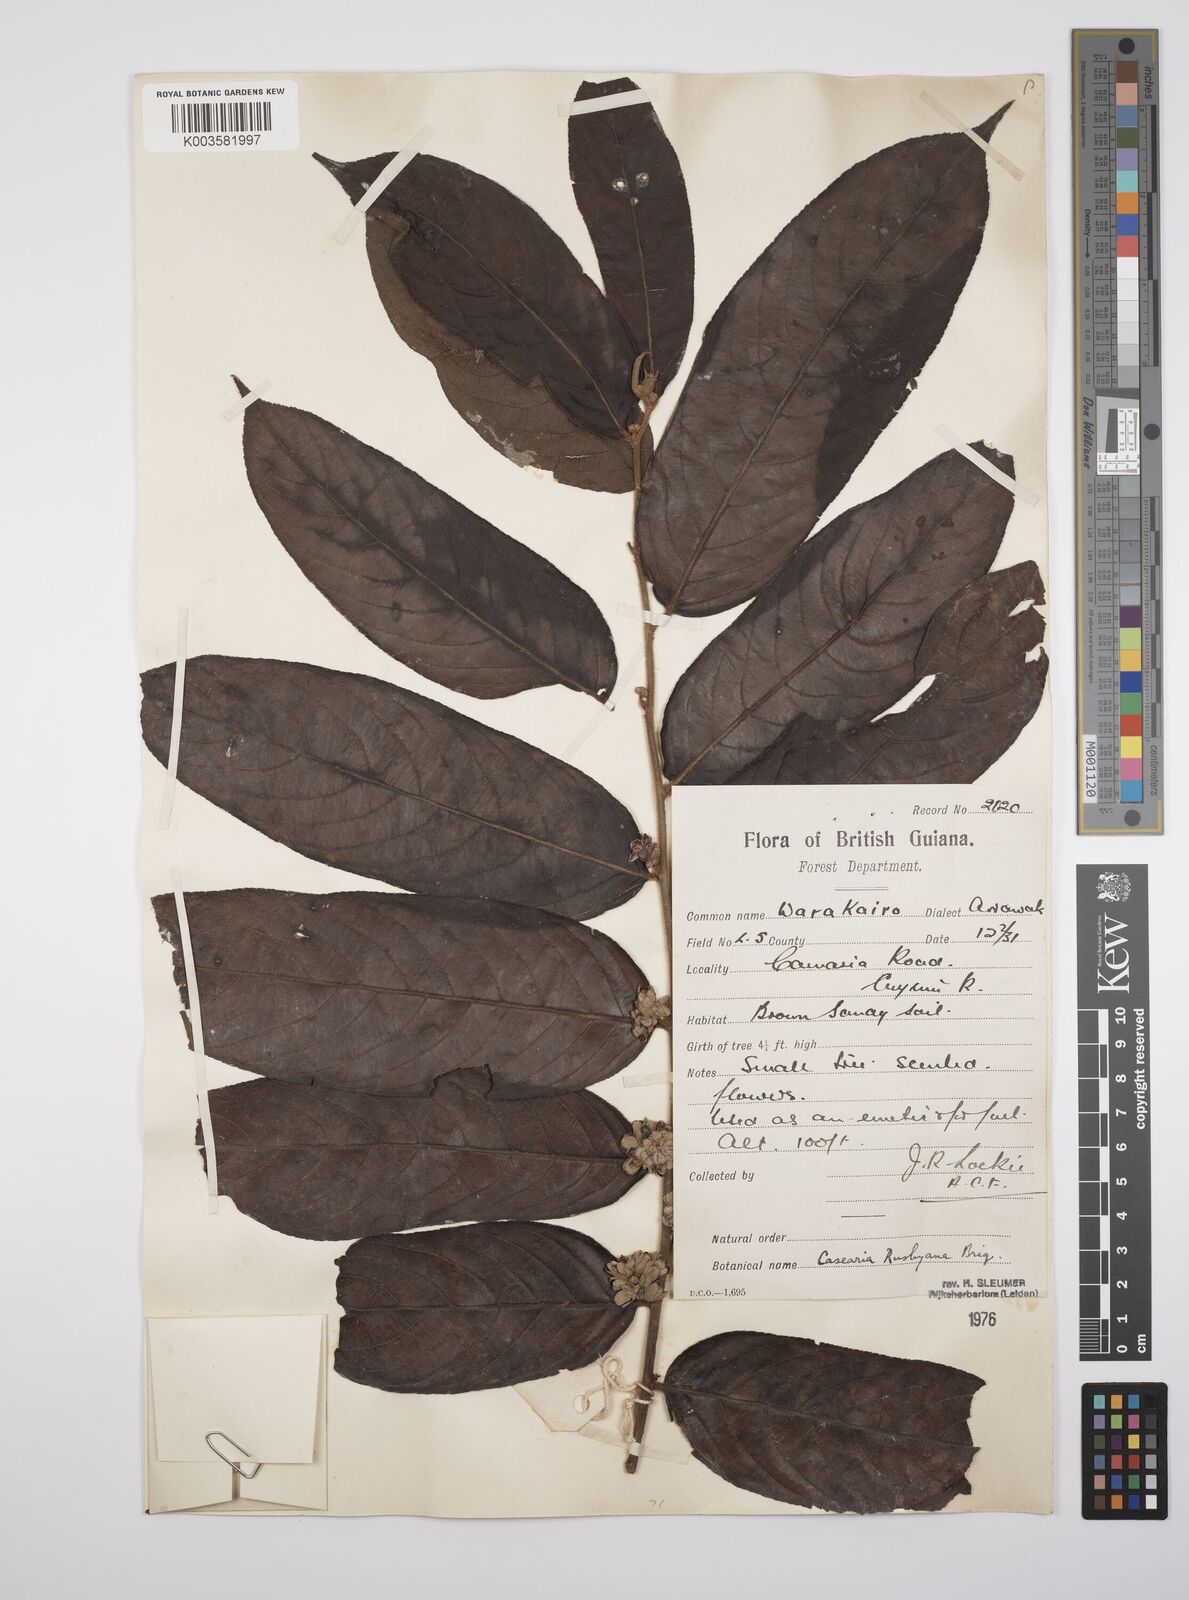 ROYAL BOTANIC GARDENS KEW
K003581997
Record No. 2120
Flora of British Guiana.
Forest Department.
Common name Warakairo Dialect Arawak
Field No. L.5 County Date 12/2/31
Locality Camaria Road.
Cuyuni R.
Habitat Brown Sandy soil.
Girth of tree 4½ ft. high
Notes Small tree scented
flowers.
Used as an emetic & for fuel.
Alt. 100ft.
Collected by J.R. Lockie
A.C.F.
Natural order
Botanical name Casearia Rusbyana Briq.
rev. H. SLEUMER
Rijksherbarium (Leiden)
1976
D.C.O.—1,695
71
inches
Density
Don Williams
centimeters
M001120
Royal Botanic Gardens
Kew
copyright reserved
0 1 2 3 4 5 6 7 8 9 10
cm